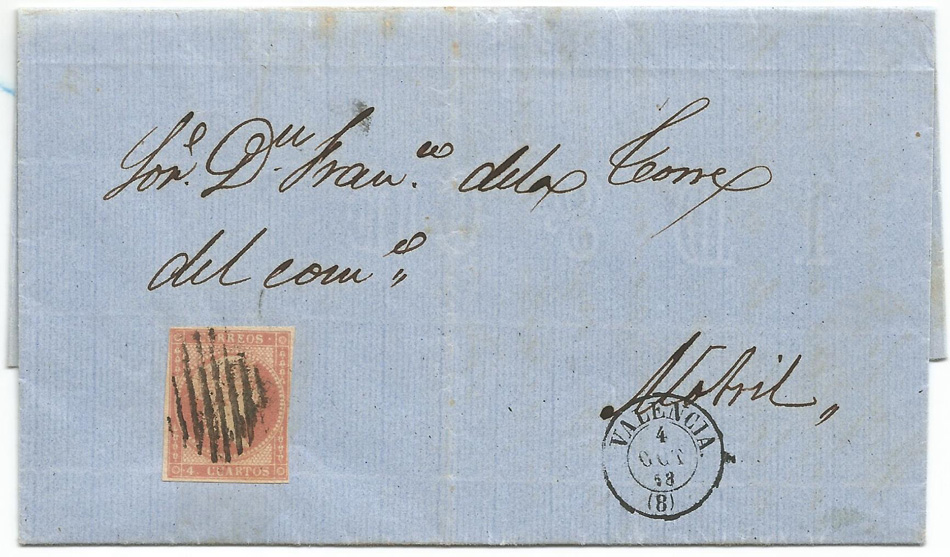 Sor. Dn. Franco. de la Torre
del como.
Motril
CORREOS
4 CUARTOS
VALENCIA.
4
OCT
58
(8)